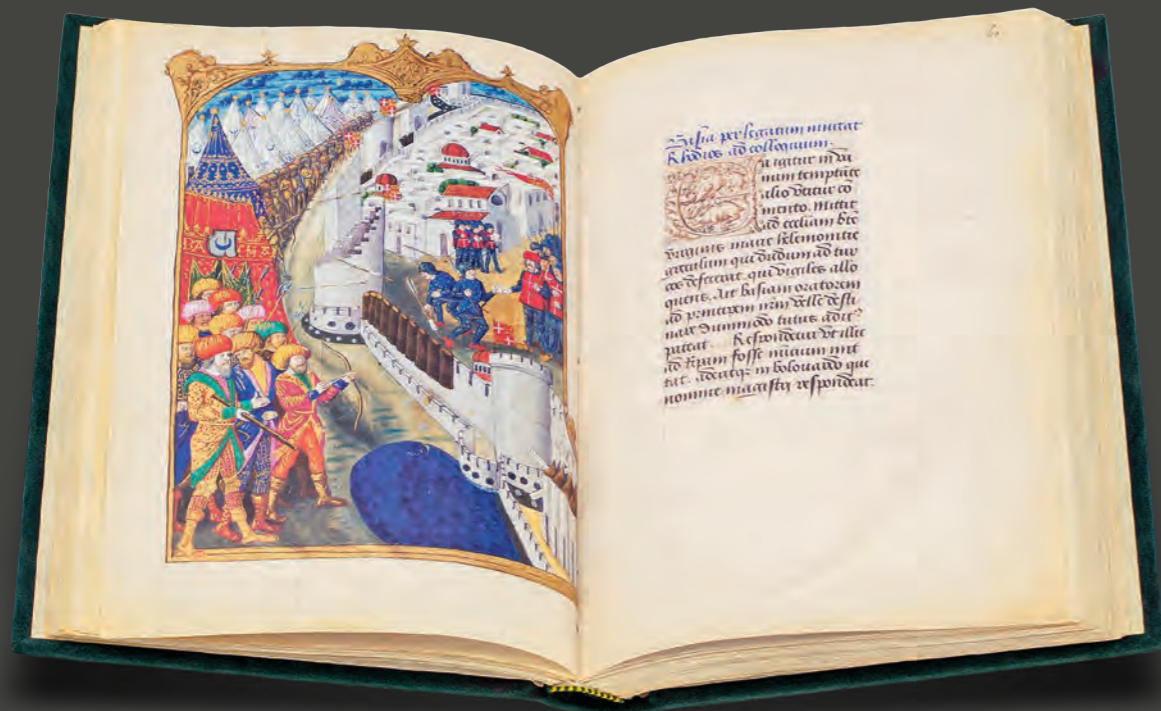 BA CHA
Basia per legatum invitat
Rhodios ad colloquium.
Ea igitur in va
num temptata
alio utitur co
mento. Mittit
ad eccliam bte
virginis marie helemonitre
greculum qui dudum ad tur
cos defecerat qui vigiles allo
quens. Ait basiam oratorem
ad principem urbis velle desti
nare dummodo tutus adit
pateat. Respondetur ut illic
ad ripam fosse nuntium mit
tat. Adeatque in bolouardo qui
nomine magistri respondeat.